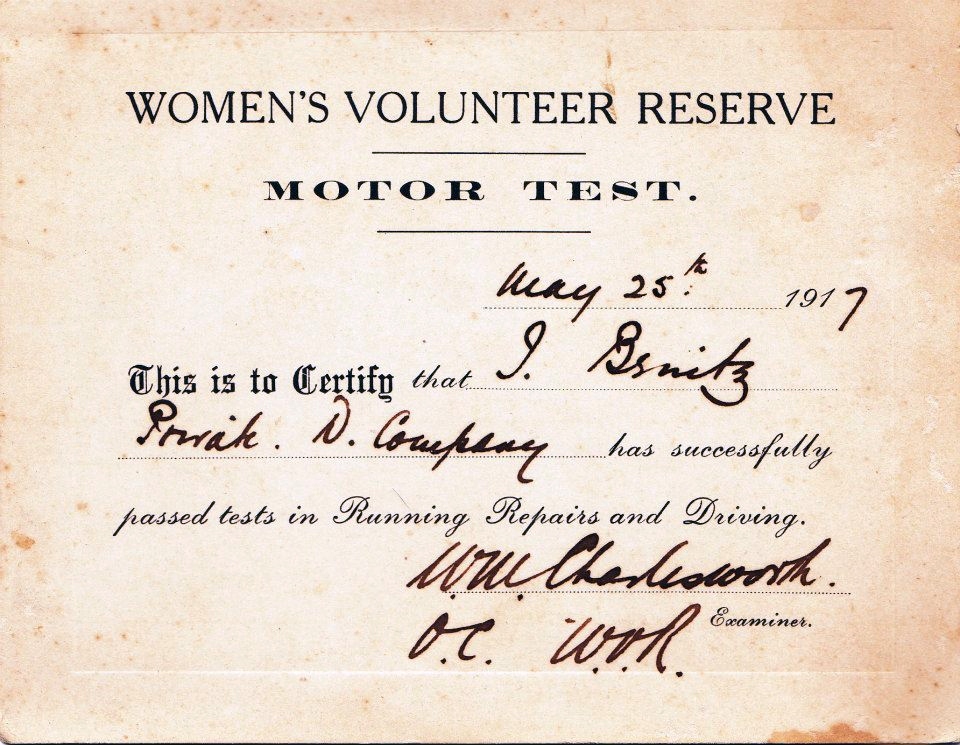 WOMEN'S VOLUNTEER RESERVE
MOTOR TEST.
May 25th 1917
This is to Certify that I. Benitz
Private. D. Company has successfully
passed tests in Running Repairs and Driving.
W.M. Charlesworth.
Examiner.
O.C. W.V.R.